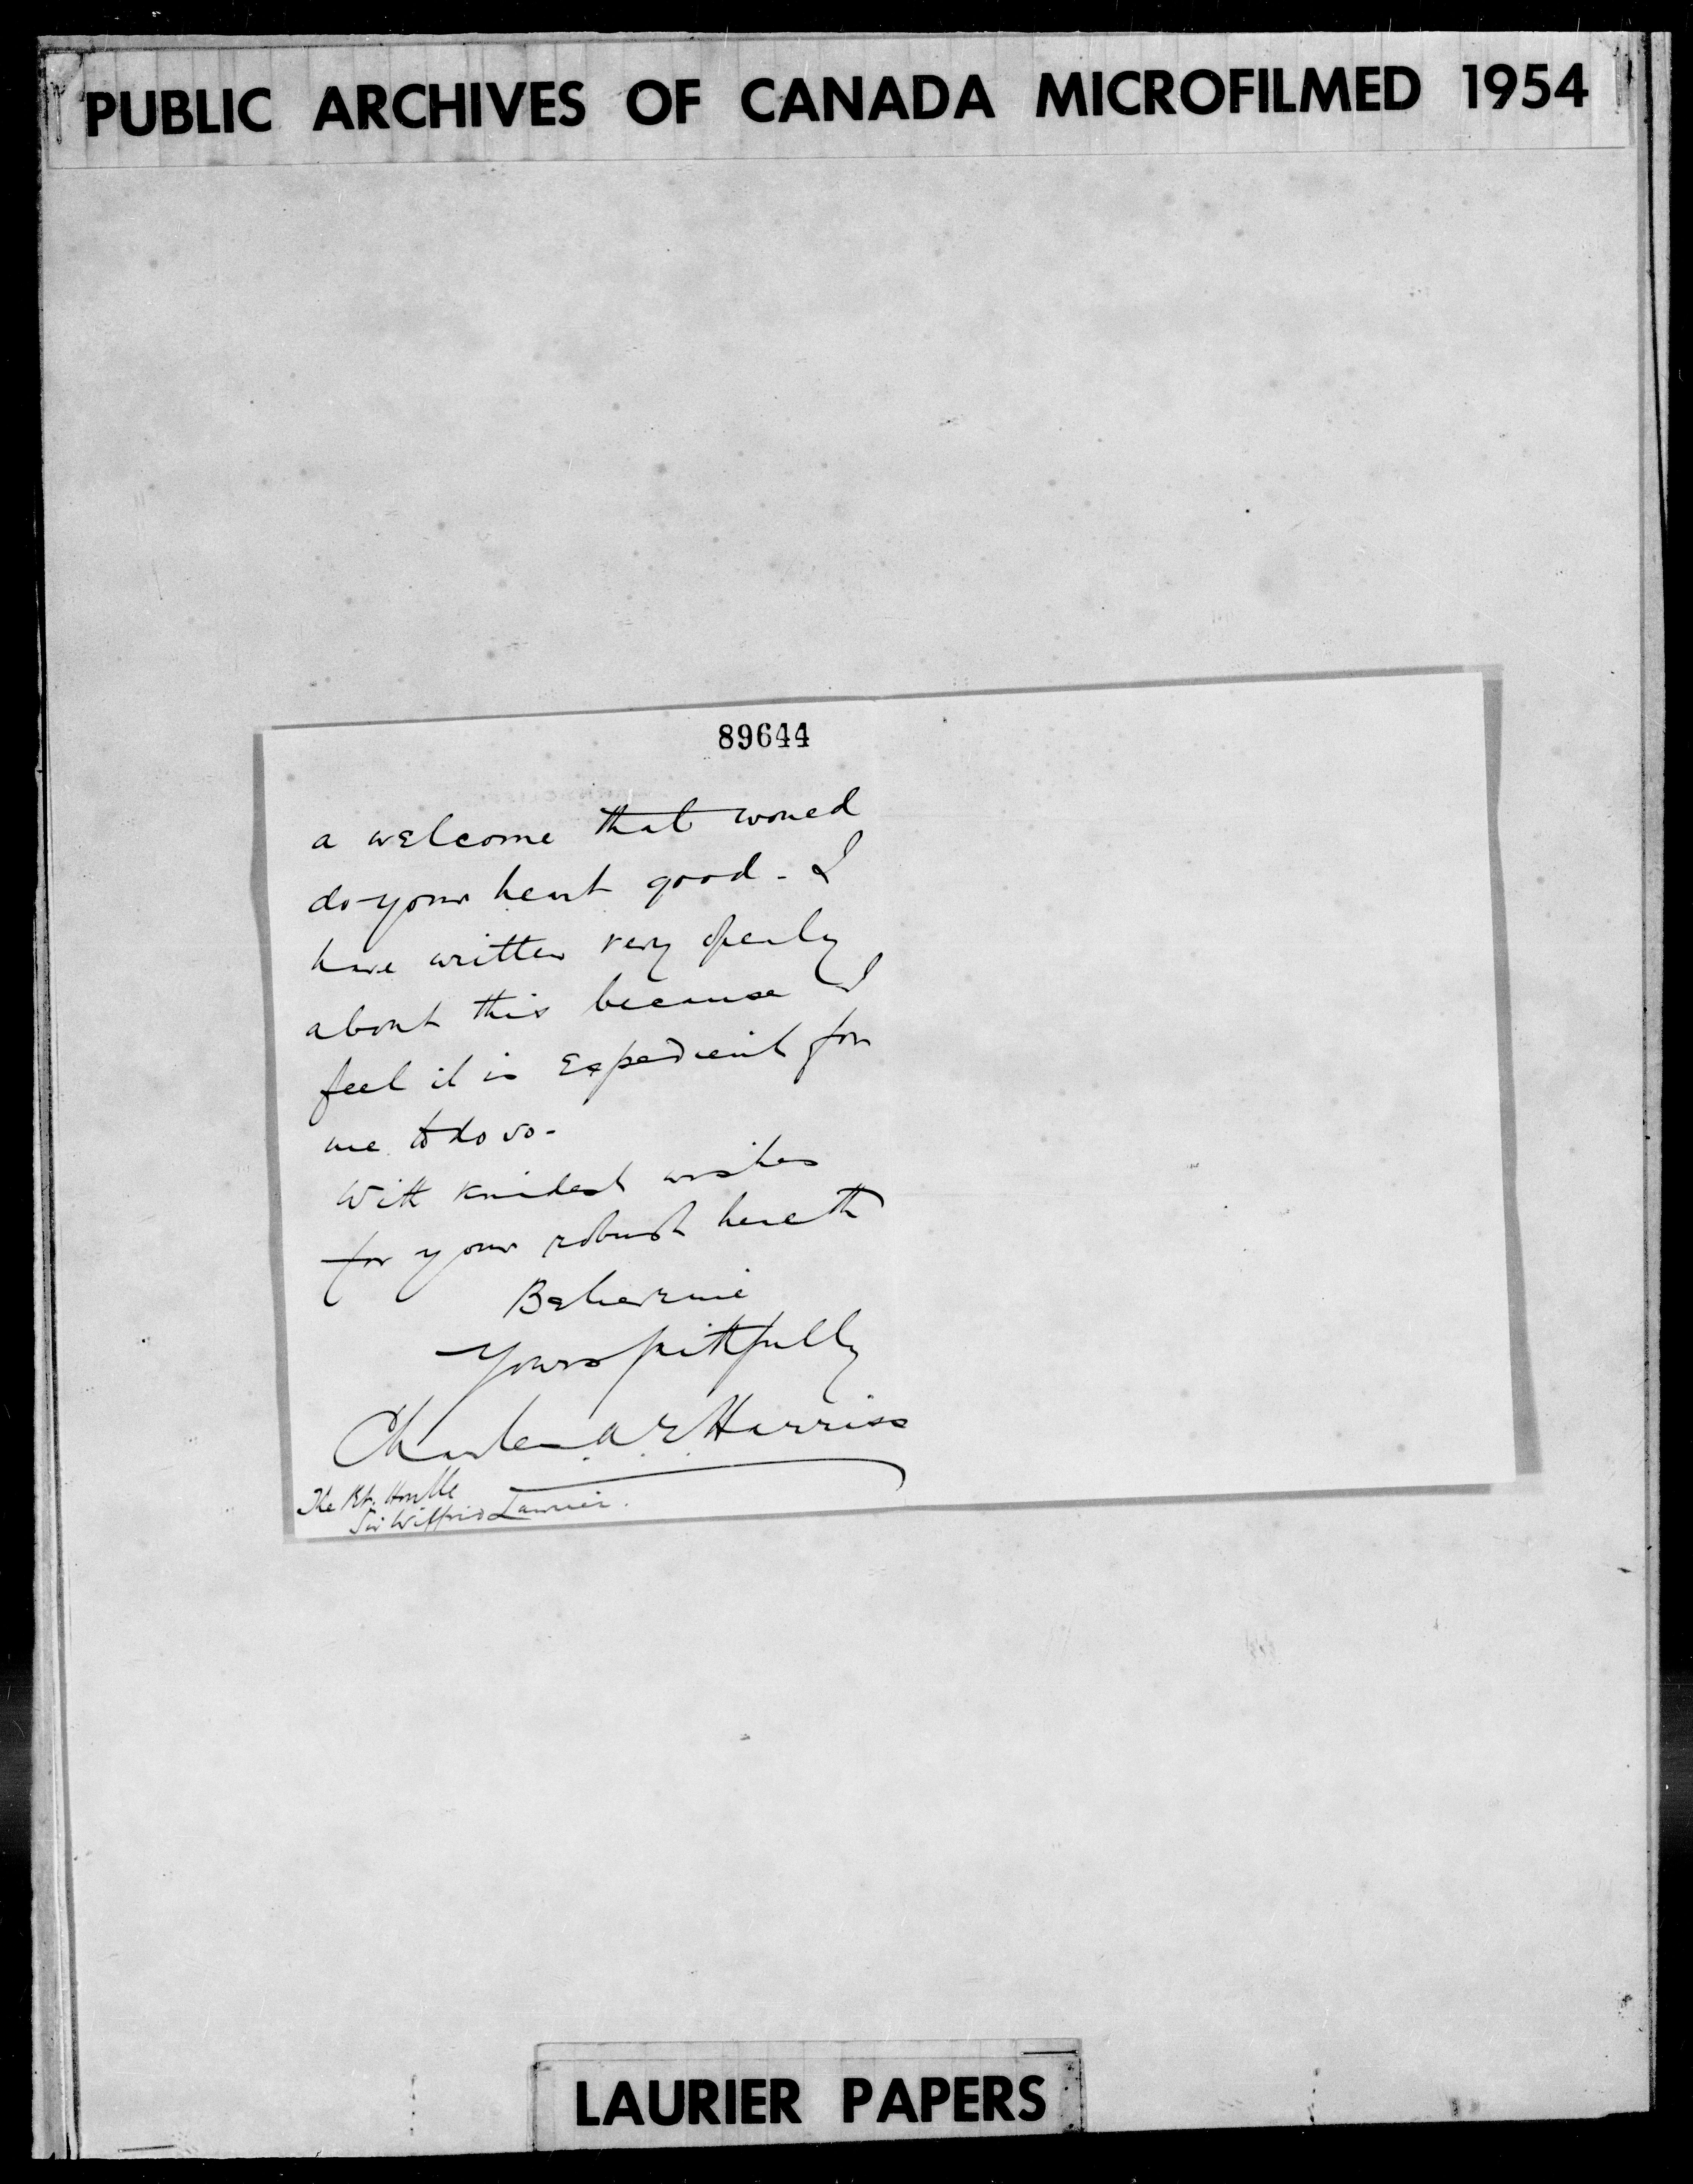 PUBLIC ARCHIVES OF CANADA MICROFILMED 1954
89644
a welcome that would
do your heart good - I
have written very openly
about this because I
feel it is Expedient for
me to do so -
With kindest wishes
for your robust health
Believe me
Yours faithfully
Charles A. E. Harriss
The Rt. Honble
Sir Wilfrid Laurier.
LAURIER PAPERS